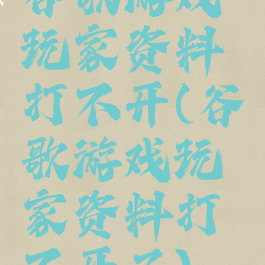 谷歌游戏
玩家资料
打不开(谷
歌游戏玩
家资料打
不开了)